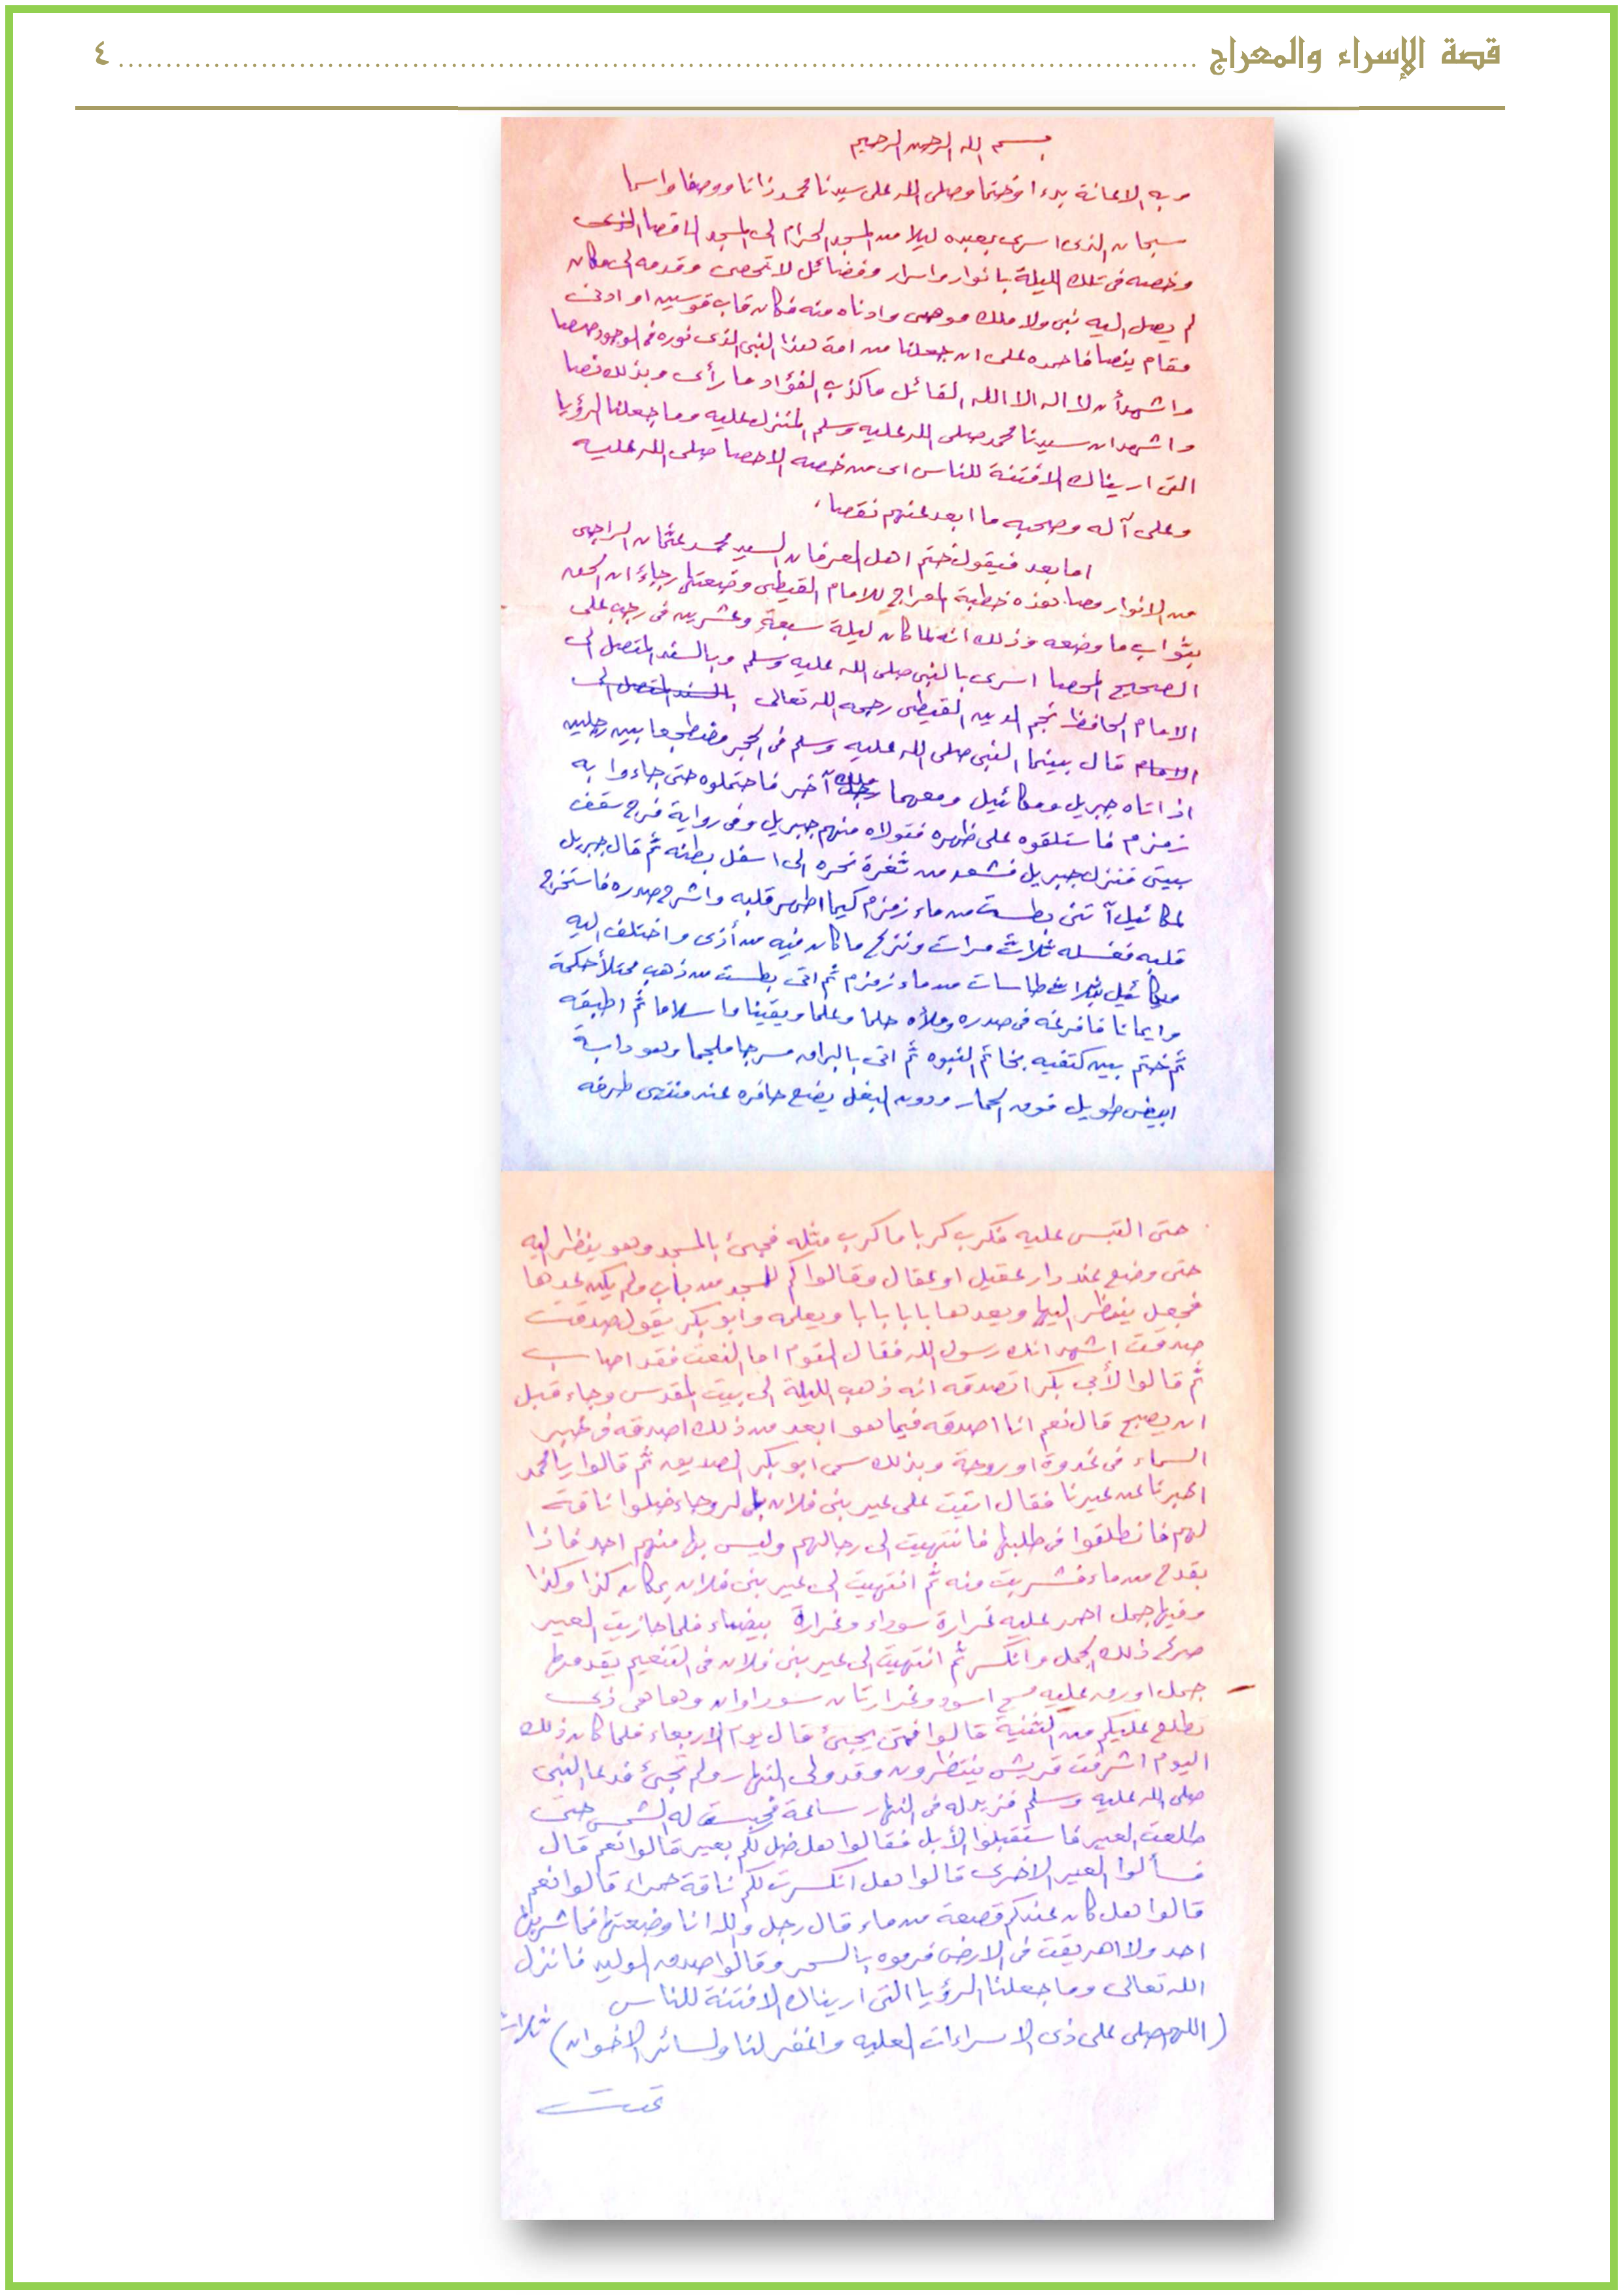 قصة الإسراء والمعراج ٤
بسم الله الرحمن الرحيم
وبه الاعانة بدءا وختما وصلى الله على سيدنا محمد ذاتا ووصفا واسما
سبحان الذى اسرى بعبده ليلا من المسجد الحرام الى المسجد الاقصا
وخصه فى تلك الليلة بانوار واسرار وفضائل لا تحصى وقدمه الى مكان
لم يصل اليه نبى ولا ملك موصى وادناه منه فكان قاب قوسين او ادنى
مقام ينصا فاحمده على ان جعلنا من امة هذا النبى الذى نوره فى الوجود
واشهد أن لا اله الا الله القائل ما كذب الفؤاد ما رأى وبذلك نصا
واشهد ان سيدنا محمد صلى الله عليه وسلم المنزل عليه وما جعلنا الرؤيا
التى اريناك الا فتنة للناس اى من خصه الاحصا صلى الله عليه
وعلى آله وصحبه ما ابعد عنهم نقصا
اما بعد فيقول ختم اهل العرفان السيد محمد عثمان الراجى
من الانوار مصا هذه خطبة المعراج للامام القيطى وضعتها رجاء ان الحق
بثواب ما وضعه وذلك انه لما كان ليلة سبعة وعشرين فى رجب على
الصحيح المحصا اسرى بالنبى صلى الله عليه وسلم وبالسند المتصل الى
الامام الحافظ نجم الدين القيطى رحمه الله تعالى بالسند المتصل الى
الامام قال بينما النبى صلى الله عليه وسلم فى الحجر مضطجعا بين رجلين
اذ اتاه جبريل وميكائيل ومعهما ملك آخر فاحتملوه حتى جاءوا به
زمزم فاستلقوه على ظهره فتولاه منهم جبريل وفى رواية فرج سقف
بيتى فنزل جبريل فشق من ثغرة نحره الى اسفل بطنه ثم قال جبريل
لمكائيل آتنى بطست من ماء زمزم كيما اطهر قلبه واشرح صدره فاستخرج
قلبه فغسله ثلاث مرات ونزع ما كان فيه من أذى واختلف اليه
ميكائيل بثلاث طاسات من ماء زمزم ثم اتى بطست من ذهب ممتلأ حكمة
وايمانا فافرغه فى صدره وملأه حلما وعلما ويقينا واسلاما ثم اطبقه
ثم ختم بين كتفيه بخاتم النبوه ثم اتى بالبراق مسرجا ملجما وهو دابة
ابيض طويل فوق الحمار ودون البغل يضع حافره عند منتهى طرفه
حتى التبس عليه فكرب كربا ما كرب مثله فجىء بالمسجد وهو ينظر اليه
حتى وضع عند دار عقيل او عقال وقالوا كم للمسجد من باب ولم يكن عدها
فجعل ينظر اليها ويعدها بابا بابا ويعلمه وابو بكر يقول صدقت
صدقت اشهد انك رسول الله فقال القوم اما النعت فقد اصاب
ثم قالوا لأبى بكر اتصدقه انه ذهب الليلة الى بيت المقدس وجاء قبل
ان يصبح قال نعم انا اصدقه فيما هو ابعد من ذلك اصدقه فى خبر
السماء فى غدوة او روحة وبذلك سمى ابو بكر الصديق ثم قالوا يا محمد
اخبرنا عن عيرنا فقال اتيت على عير بنى فلان بالروحاء ضلوا ناقة
لهم فانطلقوا فى طلبها فانتهيت الى رحالهم وليس بها منهم احد فاذا
بقدح من ماء فشربت منه ثم انتهيت الى عير بنى فلان بمكان كذا وكذا
وفيها جمل احمر عليه غرارة سوداء وغرارة بيضاء فلما حازيت العير
صرع ذلك الجمل وانكسر ثم انتهيت الى عير بنى فلان فى التنعيم يقدمها
جمل اورق عليه مسح اسود وغرارتان سوداوان وها هى ذى
تطلع عليكم من الثنية قالوا فمتى يجىء قال يوم الاربعاء فلما كان ذلك
اليوم اشرفت قريش ينتظرون وقد ولى النهار ولم تجىء فدعا النبى
صلى الله عليه وسلم فزيد له فى النهار ساعة فحبست له الشمس حتى
طلعت العير فاستقبلوا الأبل فقالوا هل ضل لكم بعير قالوا نعم قال
فسألوا العير الاخرى قالوا هل انكسرت لكم ناقة حمراء قالوا نعم
قالوا هل كان عندكم قصعة من ماء قال رجل والله انا وضعتها فما شربها
احد ولا اهريقت فى الارض فرموه بالسحر وقالوا صدق الوليد فانزل
الله تعالى وما جعلنا الرؤيا التى اريناك الا فتنة للناس
(اللهم صلى على ذى الاسراءات العليه واغفر لنا ولسائر الاخوان) ثلاث
تمت